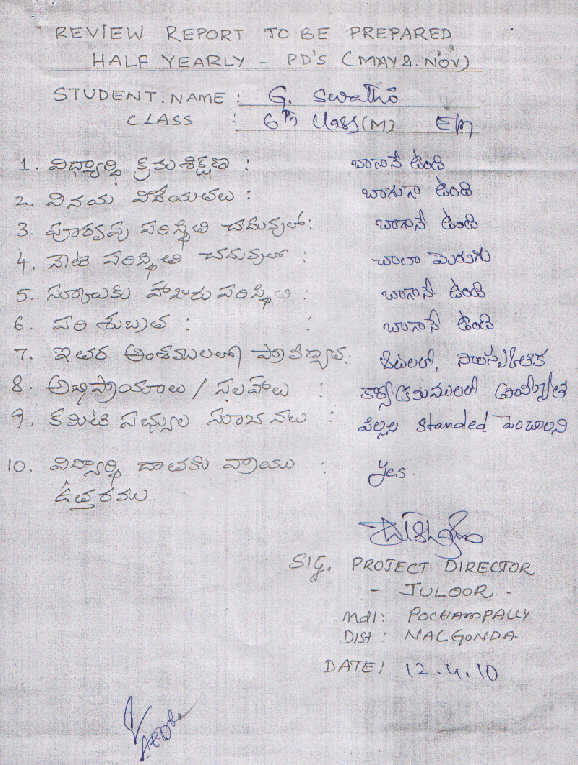 REVIEW REPORT TO BE PREPARED
HALF YEARLY - PD'S (MAY & NOV)
STUDENT. NAME : G. Swathi
CLASS : 6th class (M) E/M
1. విద్యార్థి క్రమశిక్షణ : బాగానే ఉంది
2. వినయ విధేయతలు : బాగుగా ఉంది
3. పూర్వపు పరిస్థితి చదువులో : బాగానే ఉంది
4. నేటి పరిస్థితి చదువులో : చాలా మెరుగు
5. స్కూలుకు హాజరు పరిస్థితి : బాగానే ఉంది
6. పరిశుభ్రత : బాగానే ఉంది
7. ఇతర అంశములలో ప్రావీణ్యత. ఆటలలో, సాంస్కృతిక
8. అభిప్రాయాలు / సలహాలు : కార్యక్రమములలో
9. కమిటి సభ్యుల సూచనలు : పిల్లల Standed పెంచాలని
10. విద్యార్థి దాతకు వ్రాయు : Yes.
ఉత్తరము
Sig. PROJECT DIRECTOR
- JULOOR -
Mdl: POCHAMPALLY
Dist: NALGONDA
DATE: 12.4.10